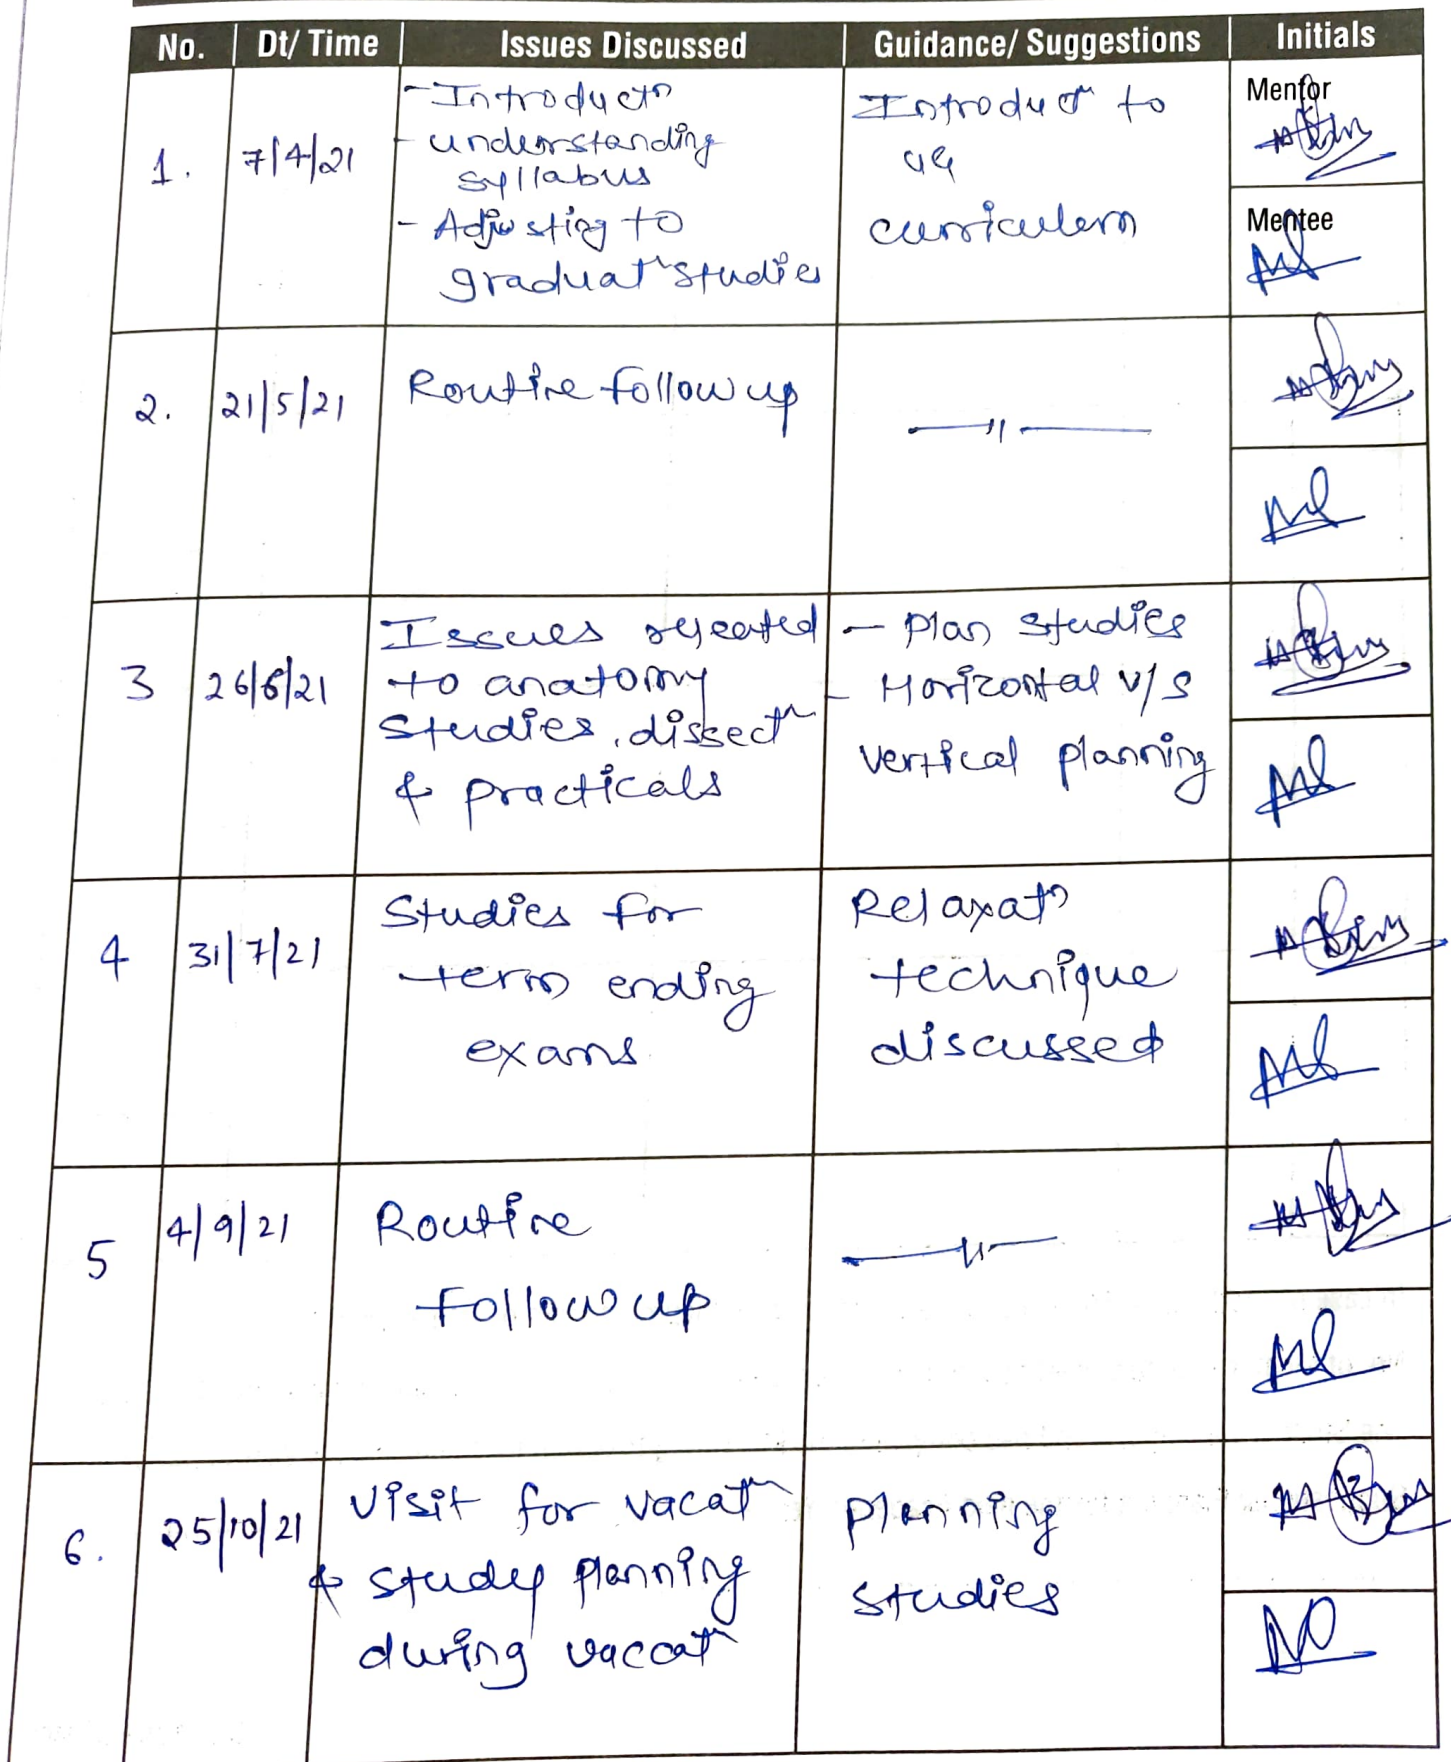 No. Dt/ Time Issues Discussed Guidance/ Suggestions Initials
1. 7/4/21
- Introductn
- understanding
syllabus
- Adjusting to
graduatn studies
Introductn to
UG
curriculem
Mentor
Mentee
2. 21/5/21
Routine follow up
—〃—
3 26/6/21
Issues rejeated
to anatomy
studies, dissectn
& practicals
- Plan studies
- Horizontal v/s
vertical planning
4 31/7/21
Studies for
term ending
exams
Relaxatn
technique
discussed
5 4/9/21
Routine
follow up
—〃—
6. 25/10/21
Visit for vacatn
& study planning
during vaccatn
planning
studies